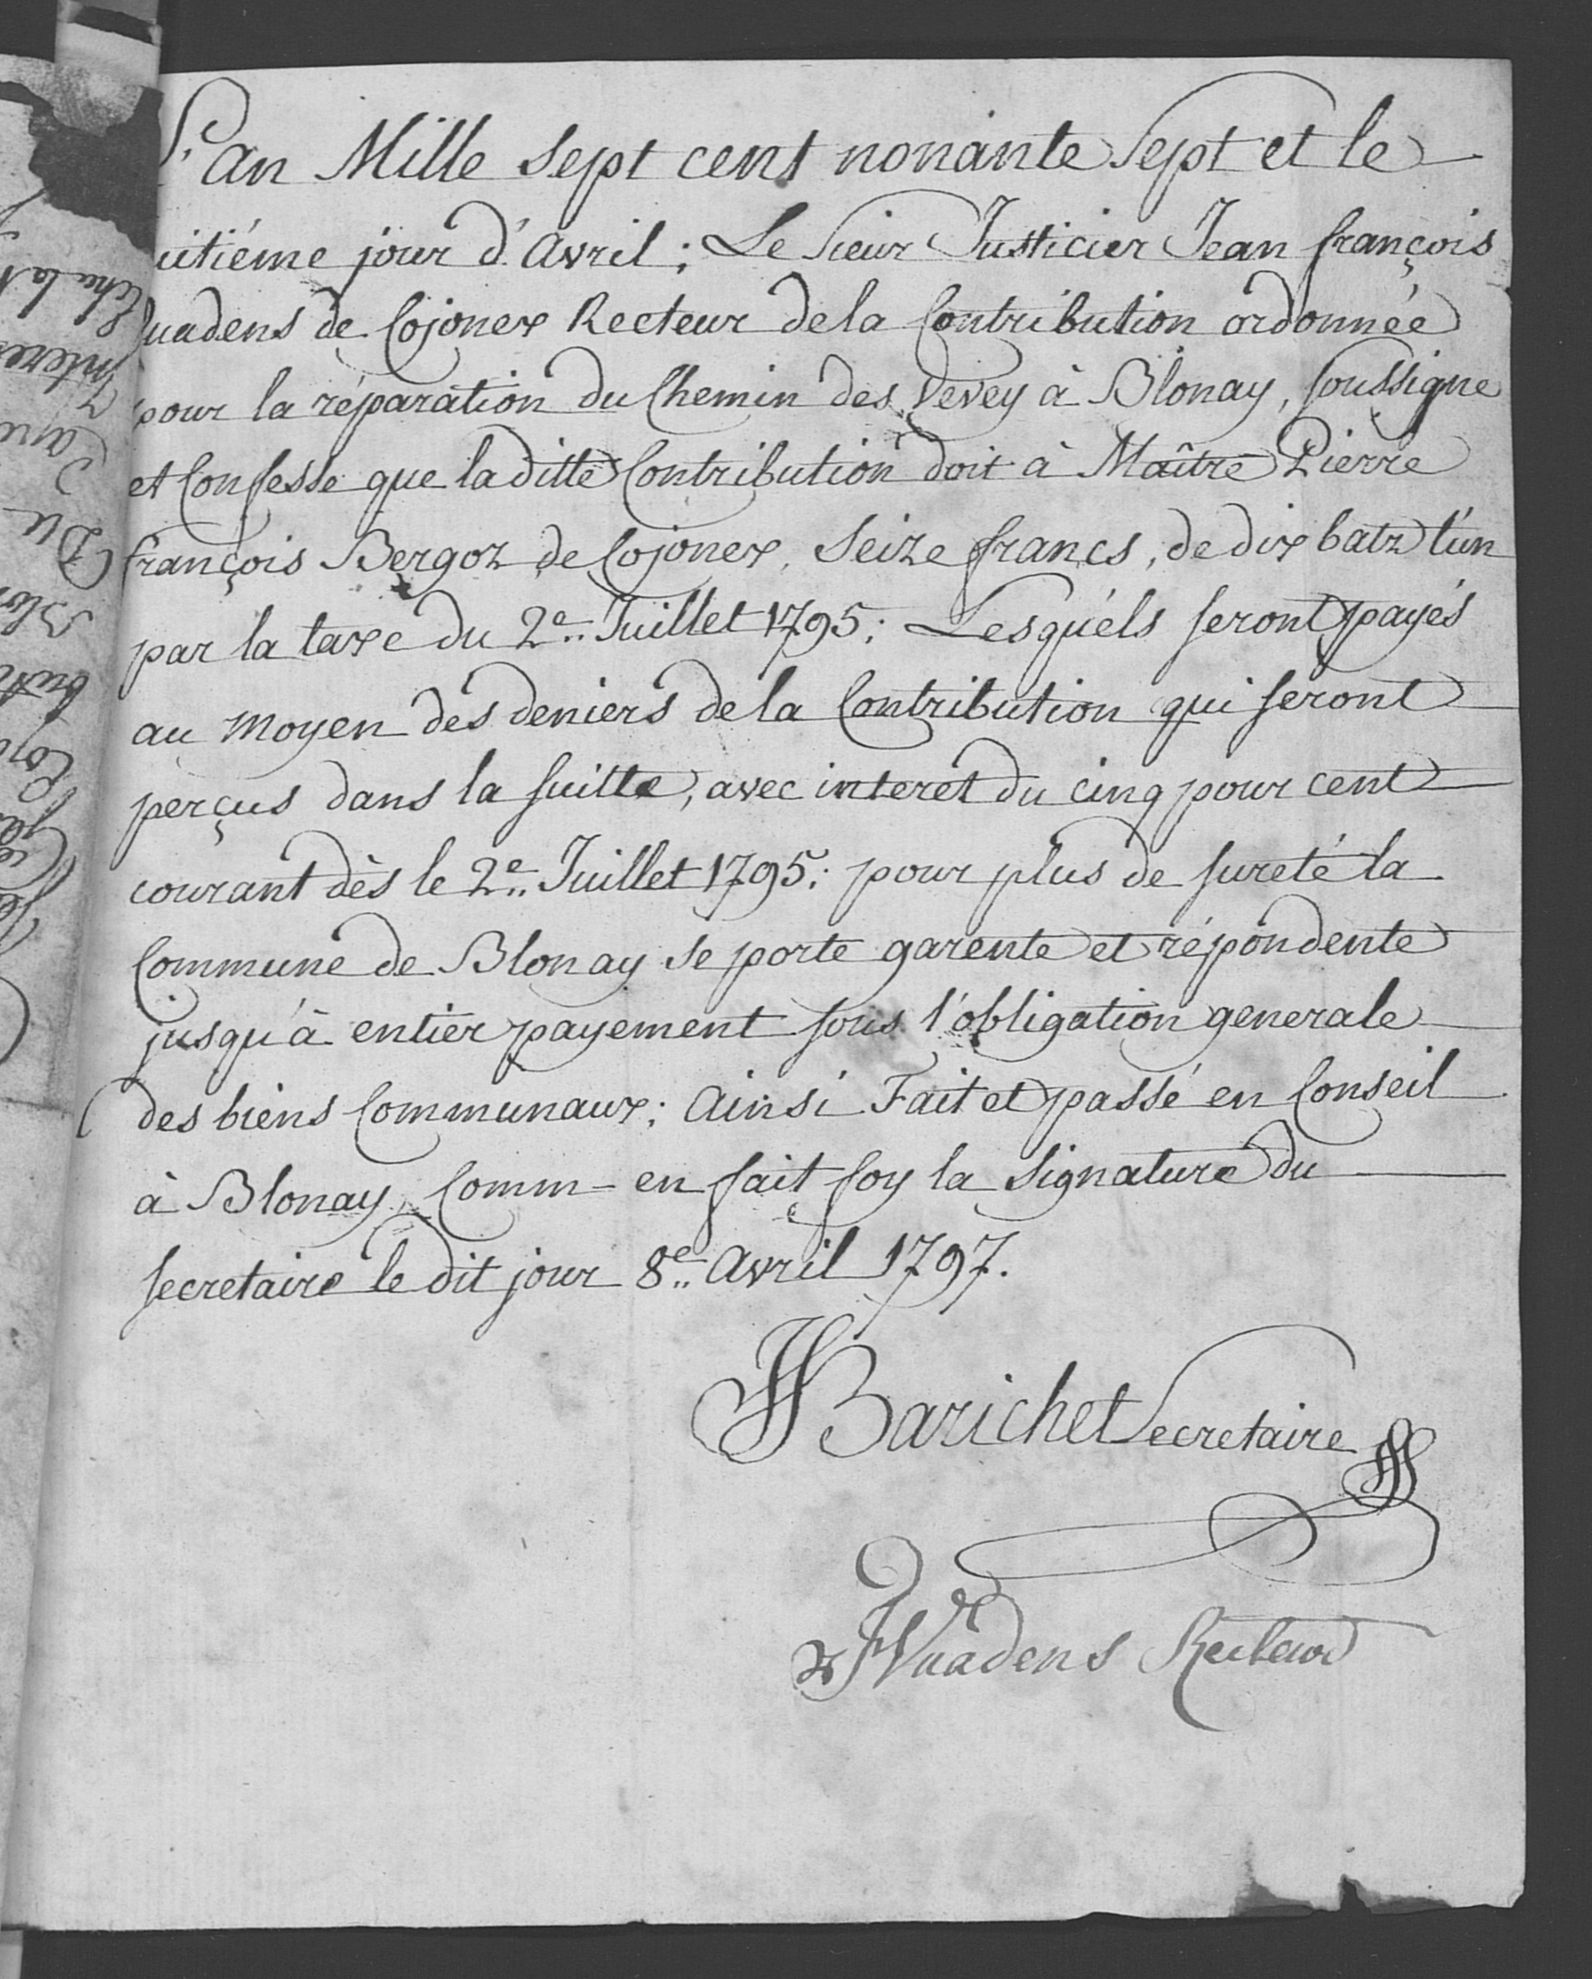 L'an Mille Sept cent nonante Sept et le
uitiéme jour d'Avril; Le Sieur Justicier Jean françois
uadens de Cojonex Recteur de la Contribution ordonnée
pour la réparation du Chemin des Vevey à Blonay, soussigne
et Confesse que la ditte Contribution doit à Maître Pierre
françois Bergoz de Cojonex, Seize francs, de dix batz l'un
par la taxe du 2e. Juillet 1795; Lesquéls seront payés
au moyen des deniers de la Contribution qui seront
perçus dans la suitte, avec interet du cinq pour cent
courant dès le 2e. Juillet 1795; pour plus de sureté la
Commune de Blonay se porte garente et répondente
jusqu'à entier payement sous l'obligation generale
des biens Communaux; Ainsi Fait et passé en Conseil
à Blonay, Comm- en fait foy la Signature du
secretaire le dit jour 8e. Avril 1797.
Barichet Secretaire
Vuadens Recteur